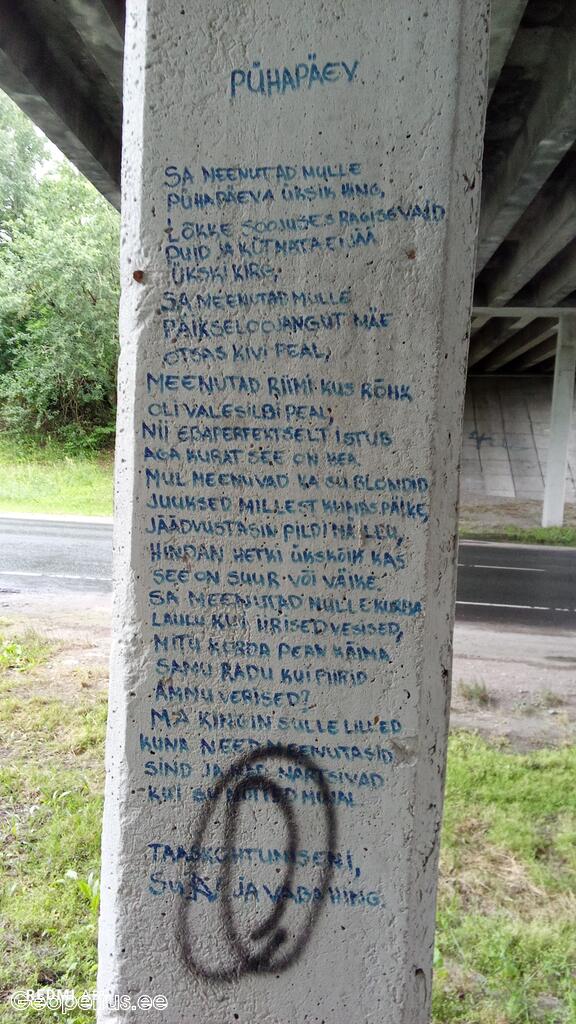 PÜHAPÄEV
SA MEENUTAD MULLE
PÜHAPÄEVA ÜKSIK HING,
LÕKKE SOOJUSES RAGISEVAID
PUID JA KÜTMATA EI JÄÄ
ÜKSKI KIRG,
SA MEENUTAD MULLE
PÄIKSELOOJANGUT MÄE
OTSAS KIVI PEAL,
MEENUTAD RIIMI KUS RÕHK
OLI VALE SILBI PEAL,
NII EBAPERFEKTSELT ISTUB
AGA KURAT SEE ON HEA
MUL MEENUVAD KA SU BLONDID
JUUKSED MILLEST KUMAS PÄIKE,
JÄÄDVUSTASIN PILDI MÄLLU,
HINDAN HETKI ÜKSKÕIK KAS
SEE ON SUUR VÕI VÄIKE.
SA MEENUTAD MULLE KURBA
LAULU KUI IIRISED VESISED,
MITU KORDA PEAN KÄIMA
SAMU RADU KUI PIIRID
AMMU VERISED?
MA KINGIN SULLE LILLED
KUNA NEED MEENUTASID
SIND JA NAD NÄRTSIVAD
KUI SU
TAASKOHTUMISENI,
JA VABA HING.
Geopeitus.ee